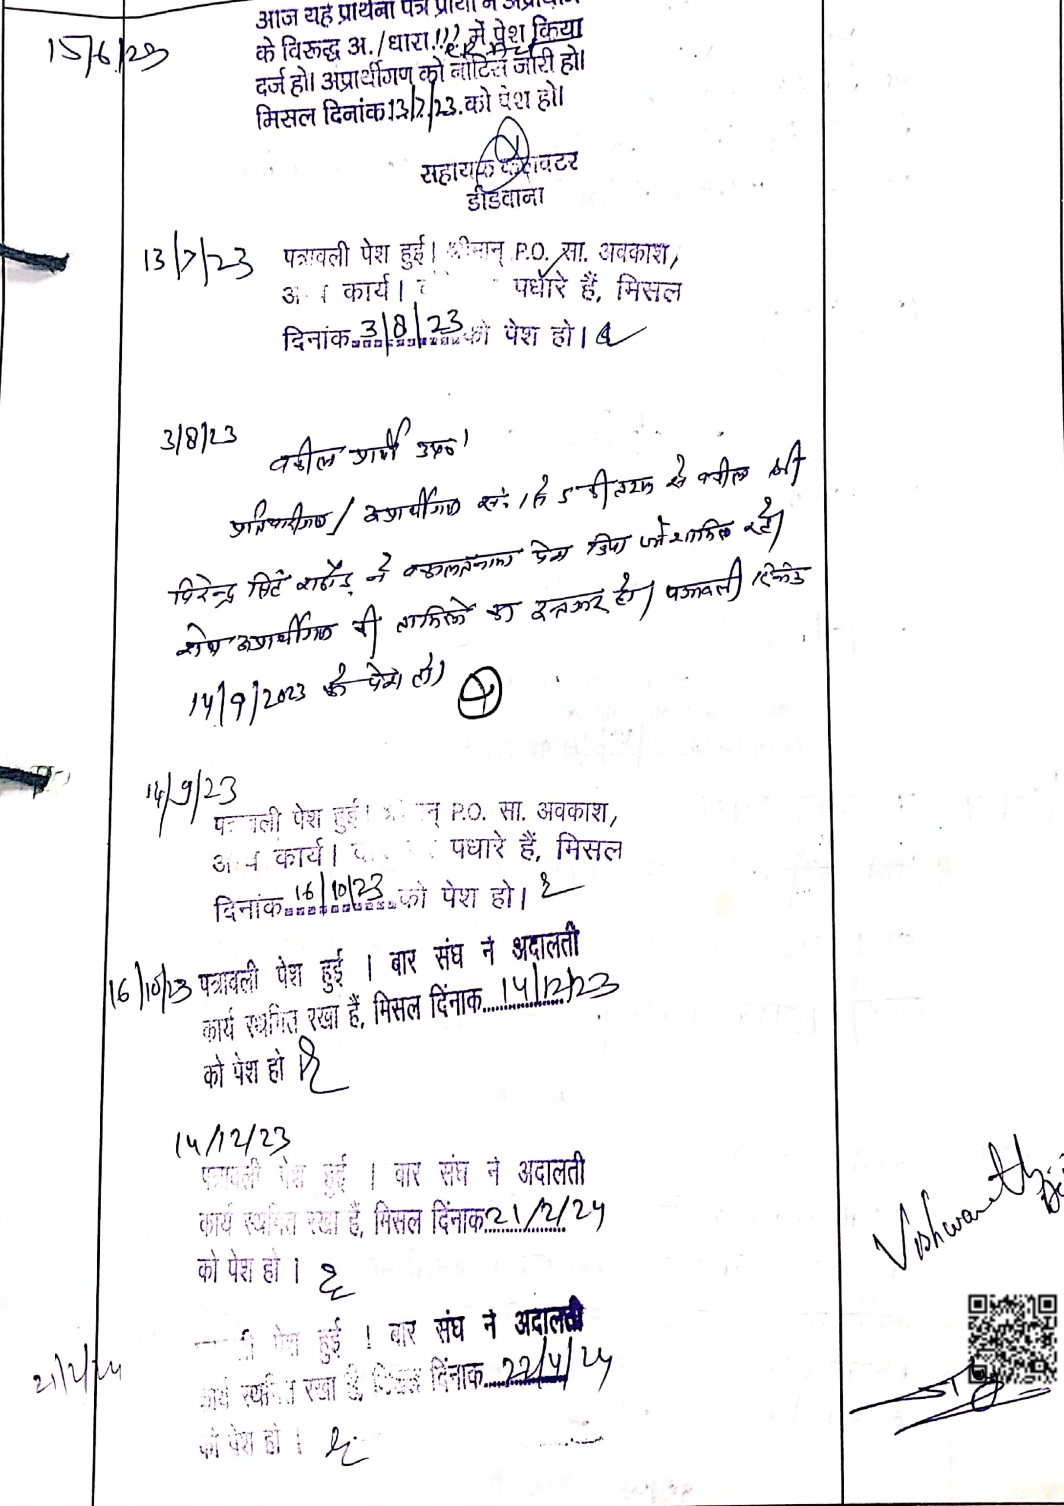 आज यह प्रार्थना पत्र प्रार्थी ने अप्रार्थीगण
15/6/23
के विरूद्ध अ./धारा में पेश किया
दर्ज हो। अप्रार्थीगण को नोटिस जारी हो।
मिसल दिनांक 13/7/23 को पेश हो।
सहायक कलेक्टर
डीडवाना
13/7/23 पत्रावली पेश हुई। श्रीमान् P.O. सा. अवकाश,
कार्य। पधारे हैं, मिसल
दिनांक 3/8/23 को पेश हो।
3/8/23
वकील प्रार्थी उप०।
अप्रार्थीगण सं. 1 से 5 की तरफ से वकील श्री
विरेन्द्र सिंह राठौड़ ने वकालतनामा पेश किया जो शामिल रहे।
शेष अप्रार्थीगण की तामिल का इन्तजार हो। पत्रावली दिनांक
14/9/2023 को पेश हो।
14/9/23
पत्रावली पेश हुई। श्रीमान् P.O. सा. अवकाश,
कार्य। पधारे हैं, मिसल
दिनांक 16/10/23 को पेश हो।
16/10/23 पत्रावली पेश हुई । बार संघ ने अदालती
कार्य स्थगित रखा हैं, मिसल दिनांक 14/12/23
को पेश हो ।
14/12/23
पत्रावली पेश हुई । बार संघ ने अदालती
कार्य स्थगित रखा हैं, मिसल दिनांक 21/2/24
को पेश हो ।
पेश हुई । बार संघ ने अदालती
21/2/24
कार्य स्थगित रखा हैं, मिसल दिनांक 22/4/24
को पेश हो ।
Vishwanath